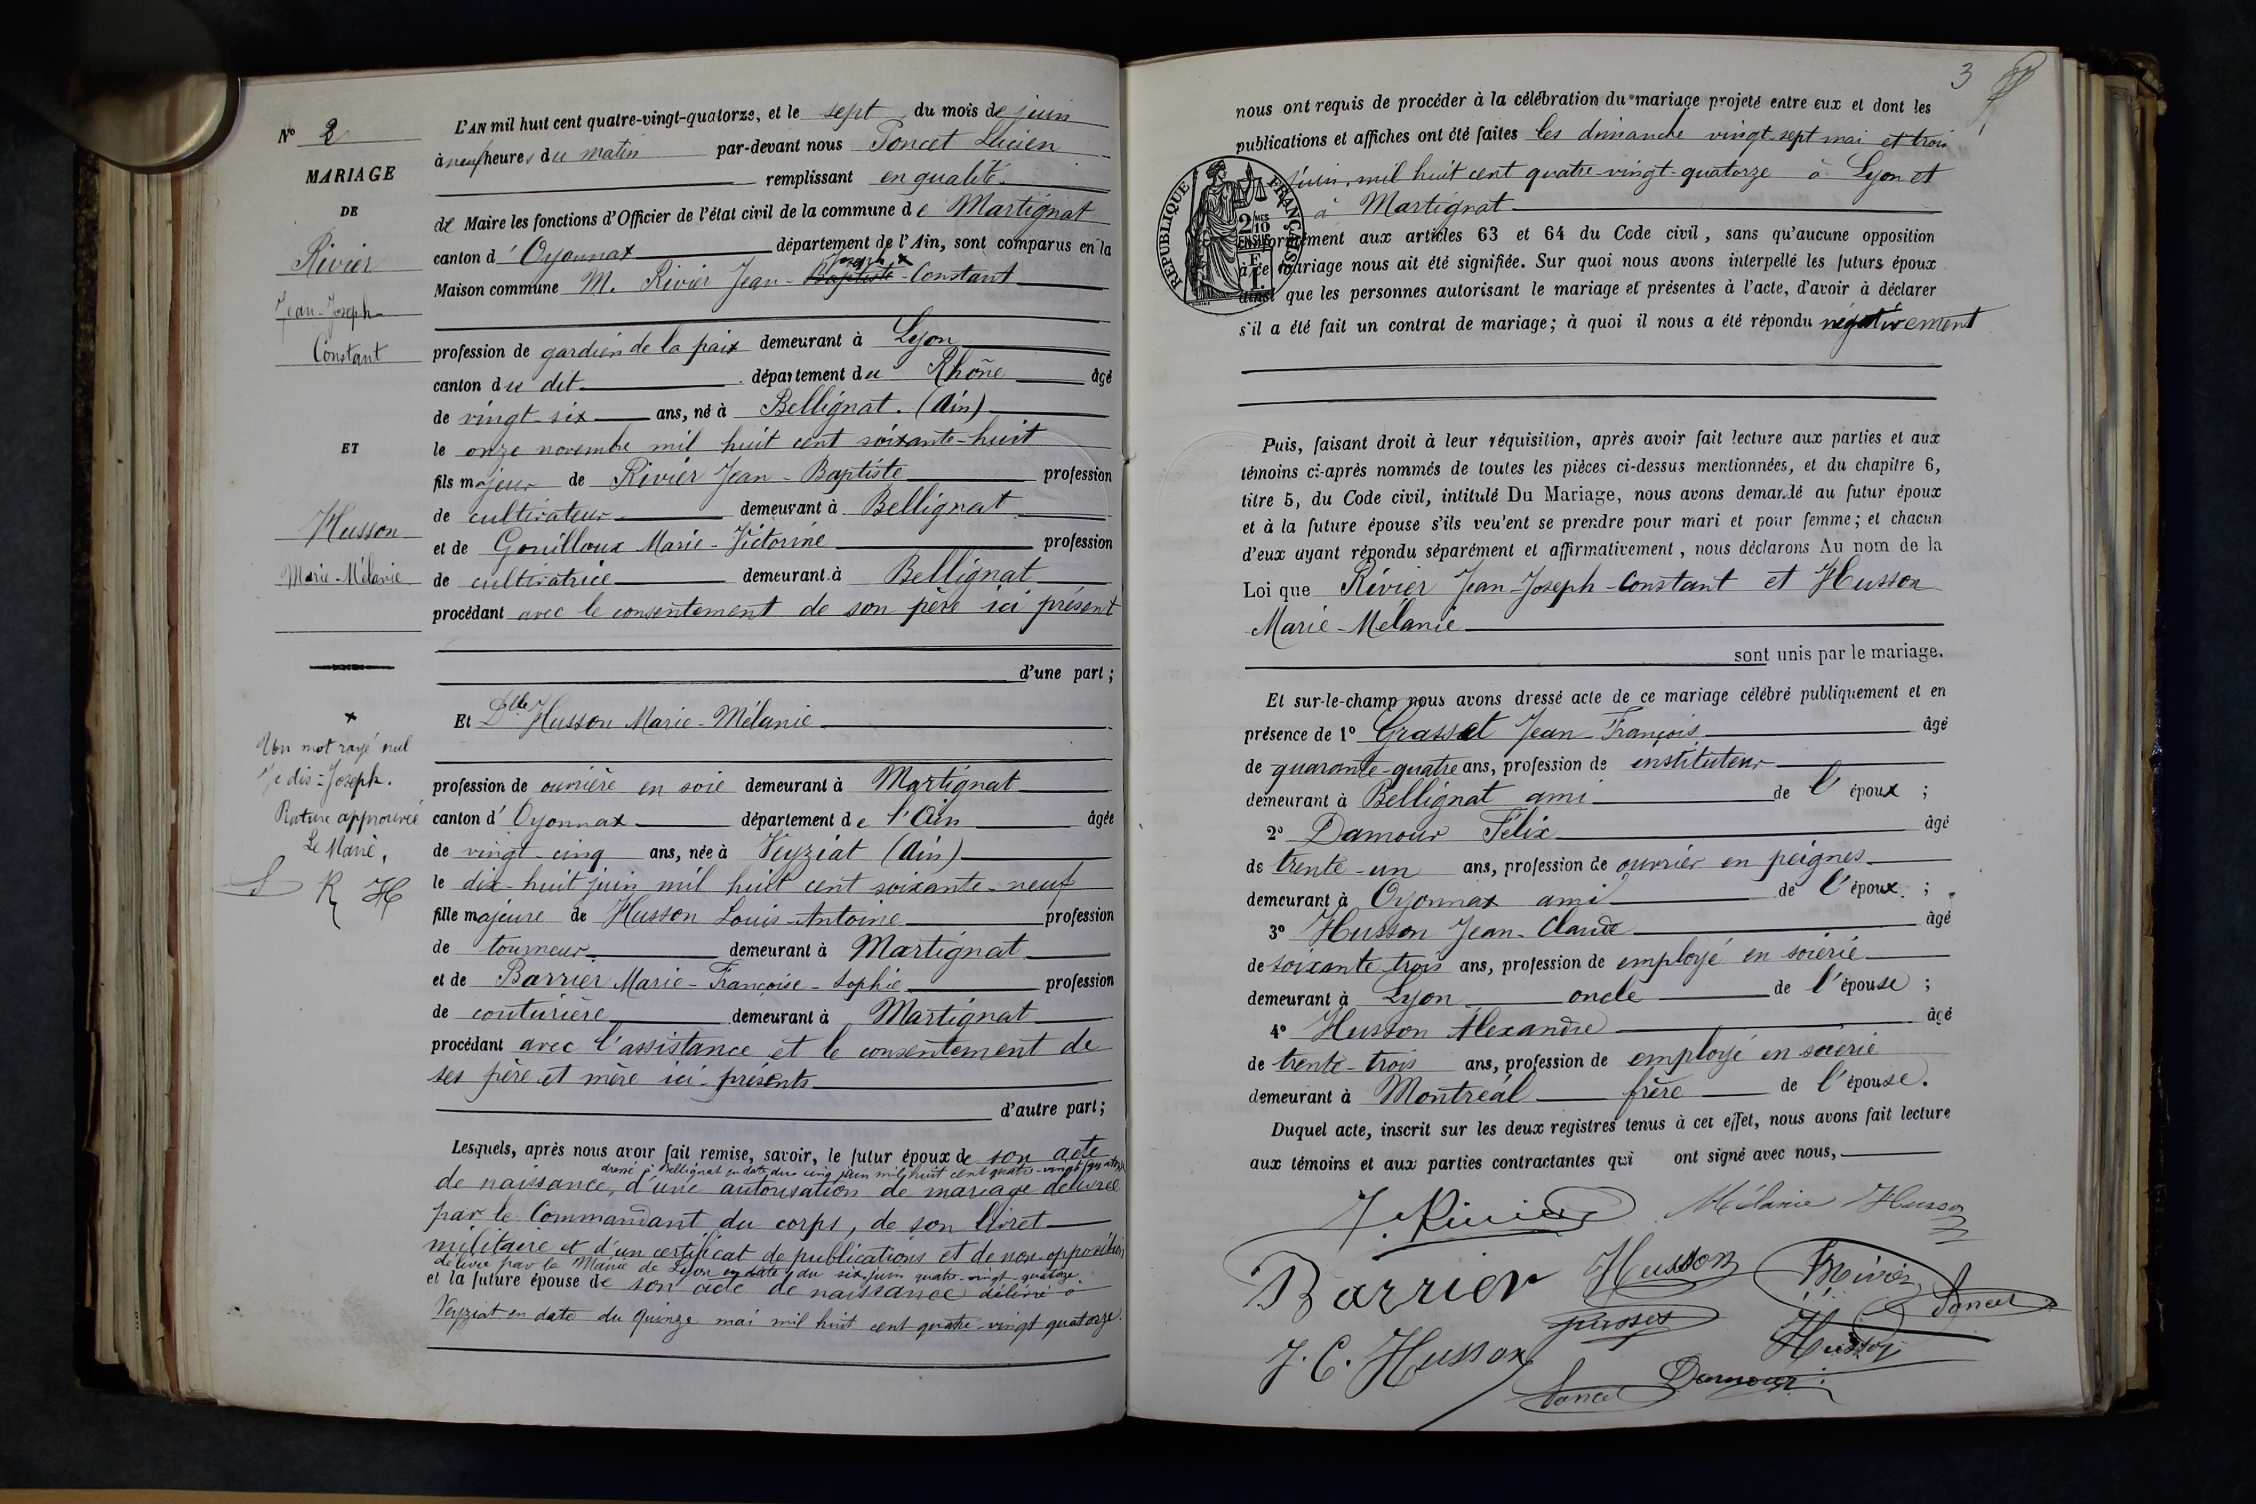 N° 2
MARIAGE
DE
Rivier
Jean-Joseph
Constant
ET
Husson
Marie-Mélanie
x
Un mot rayé nul
Je dis = Joseph.
Rature approuvée
Le Maire,
R H
L'AN mil huit cent quatre-vingt-quatorze, et le sept du mois de juin
à neuf heures du matin par-devant nous Poncet Lucien
remplissant en qualité
de Maire les fonctions d'Officier de l'état civil de la commune de Martignat
canton d'Oyonnax département de l'Ain, sont comparus en la
Joseph x
Maison commune M. Rivier Jean-Baptiste-Constant
profession de gardien de la paix demeurant à Lyon
canton du dit département du Rhône âgé
de vingt-six ans, né à Bellignat. (Ain)
le onze novembre mil huit cent soixante-huit
fils majeur de Rivier Jean-Baptiste profession
de cultivateur demeurant à Bellignat
et de Gouilloux Marie-Victorine profession
de cultivatrice demeurant à Bellignat
procédant avec le consentement de son père ici présent
d'une part;
Et Dlle Husson Marie-Mélanie
profession de ouvrière en soie demeurant à Martignat
canton d'Oyonnax département de l'Ain âgée
de vingt-cinq ans, née à Veyziat (Ain)
le dix-huit juin mil huit cent soixante-neuf
fille majeure de Husson Louis-Antoine profession
de tourneur demeurant à Martignat
et de Barrier Marie-Françoise-Sophie profession
de couturière demeurant à Martignat
procédant avec l'assistance et le consentement de
ses père et mère ici-présents
d'autre part;
Lesquels, après nous avoir fait remise, savoir, le futur époux de son acte
dressé à Bellignat en date du cinq juin mil huit cent quatre-vingt quatorze
de naissance, d'une autorisation de mariage délivrée
par le Commandant du corps, de son livret
militaire et d'un certificat de publications et de non-opposition
délivré par la Mairie de Lyon en date du six juin quatre-vingt-quatorze.
et la future épouse de son acte de naissance délivré à
Veyziat en date du quinze mai mil huit cent quatre-vingt quatorze.
3
nous ont requis de procéder à la célébration du mariage projeté entre eux et dont les
publications et affiches ont été faites les dimanche vingt-sept mai et trois
juin, mil huit cent quatre-vingt-quatorze à Lyon et
à Martignat
RÉPUBLIQUE FRANÇAISE
2/10 EN SUS
conformément aux articles 63 et 64 du Code civil, sans qu'aucune opposition
à ce mariage nous ait été signifiée. Sur quoi nous avons interpellé les futurs époux
ainsi que les personnes autorisant le mariage et présentes à l'acte, d'avoir à déclarer
s'il a été fait un contrat de mariage; à quoi il nous a été répondu négativement
Puis, faisant droit à leur réquisition, après avoir fait lecture aux parties et aux
témoins ci-après nommés de toutes les pièces ci-dessus mentionnées, et du chapitre 6,
titre 5, du Code civil, intitulé Du Mariage, nous avons demandé au futur époux
et à la future épouse s'ils veulent se prendre pour mari et pour femme; et chacun
d'eux ayant répondu séparément et affirmativement, nous déclarons Au nom de la
Loi que Rivier Jean-Joseph-Constant et Husson
Marie-Mélanie
sont unis par le mariage.
Et sur-le-champ nous avons dressé acte de ce mariage célébré publiquement et en
présence de 1° Grasset Jean-François âgé
de quarante-quatre ans, profession de instituteur
demeurant à Bellignat ami de l'époux ;
2° Damour Félix âgé
de trente-un ans, profession de ouvrier en peignes
demeurant à Oyonnax ami de l'époux ;
3° Husson Jean-Claude âgé
de soixante trois ans, profession de employé en soierie
demeurant à Lyon oncle de l'épouse ;
4° Husson Alexandre âgé
de trente-trois ans, profession de employé en soierie
demeurant à Montréal frère de l'épouse.
Duquel acte, inscrit sur les deux registres tenus à cet effet, nous avons fait lecture
aux témoins et aux parties contractantes qui ont signé avec nous,
J. Rivier Mélanie Husson
Barrier Husson Rivier
Poncet
J. C. Husson Husson
Damour